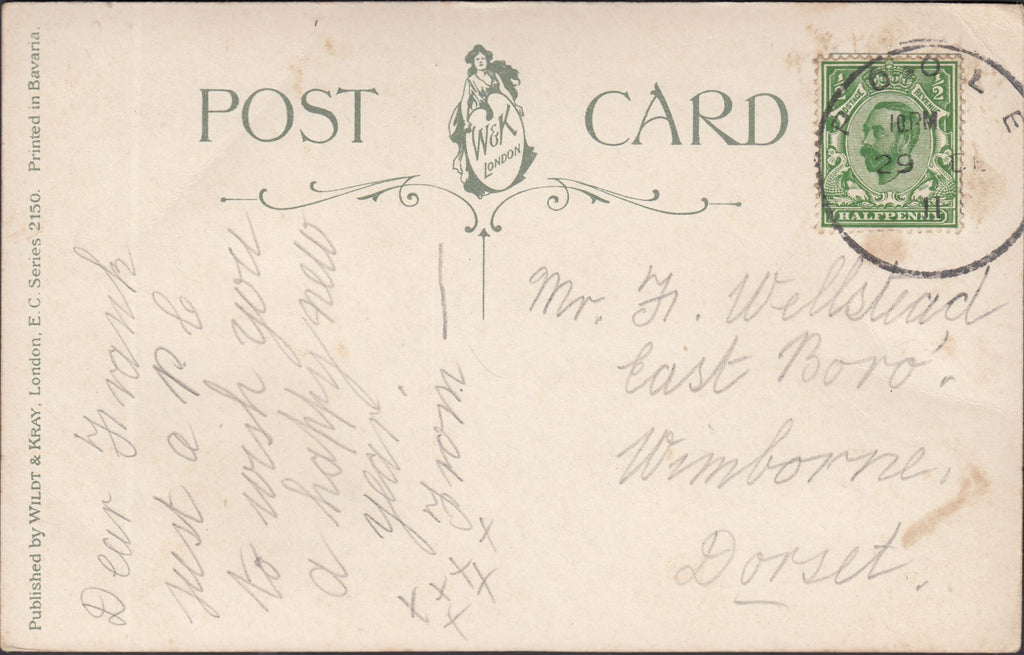 Published by WILDT & KRAY, London, E.C. Series 2150. Printed in Bavaria.
POST CARD
W&K
LONDON
POOLE
10.PM
29 DE
11
1/2 1/2
POSTAGE REVENUE
HALFPENNY
Dear Frank
just a P C
to wish you
a happy new
year.
From —
x x x x x x x
Mr. F. Wellstead
East Boro'.
Wimborne.
Dorset.